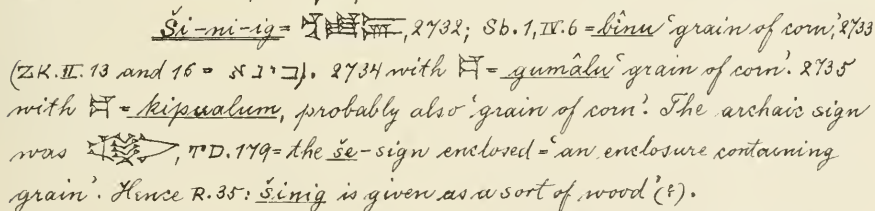 Ši-ni-ig = , 2732; Sb. 1, IV. 6 = bînu 'grain of corn', 2733
(ZK. II. 13 and 16 = בינא). 2734 with = gumâlu 'grain of corn'. 2735
with = kipualum, probably also 'grain of corn'. The archaic sign
was , TD. 179 = the še-sign enclosed = 'an enclosure containing
grain'. Hence R. 35: šinig is given as a sort of wood' (?).